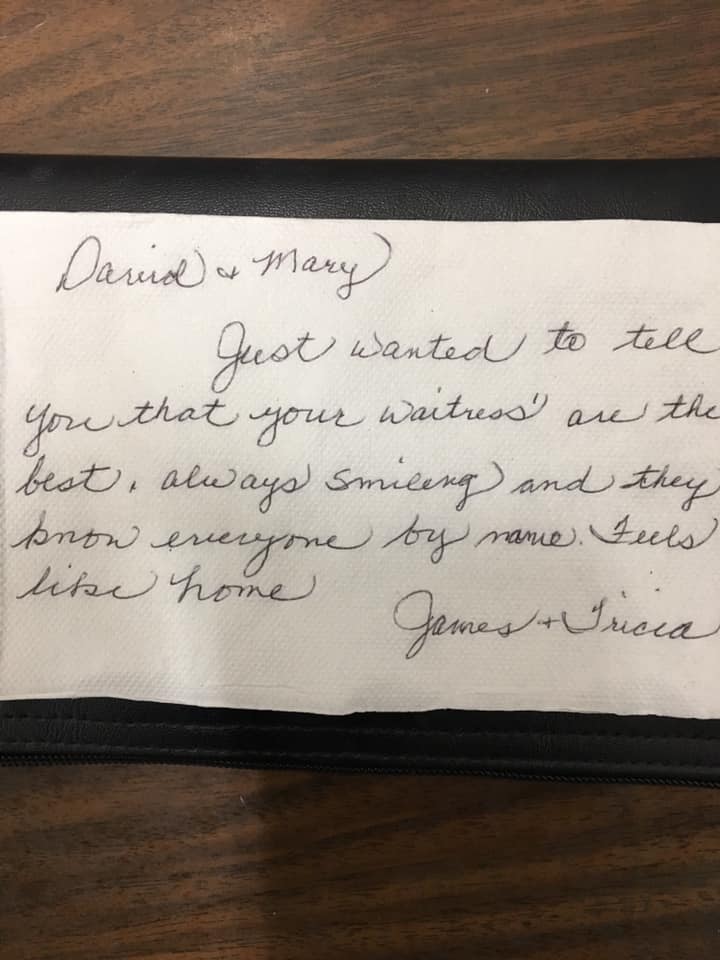 David & Mary
Just wanted to tell
you that your waitress' are the
best, always smileng and they
know everyone by name. Feels
like home
James + Tricia